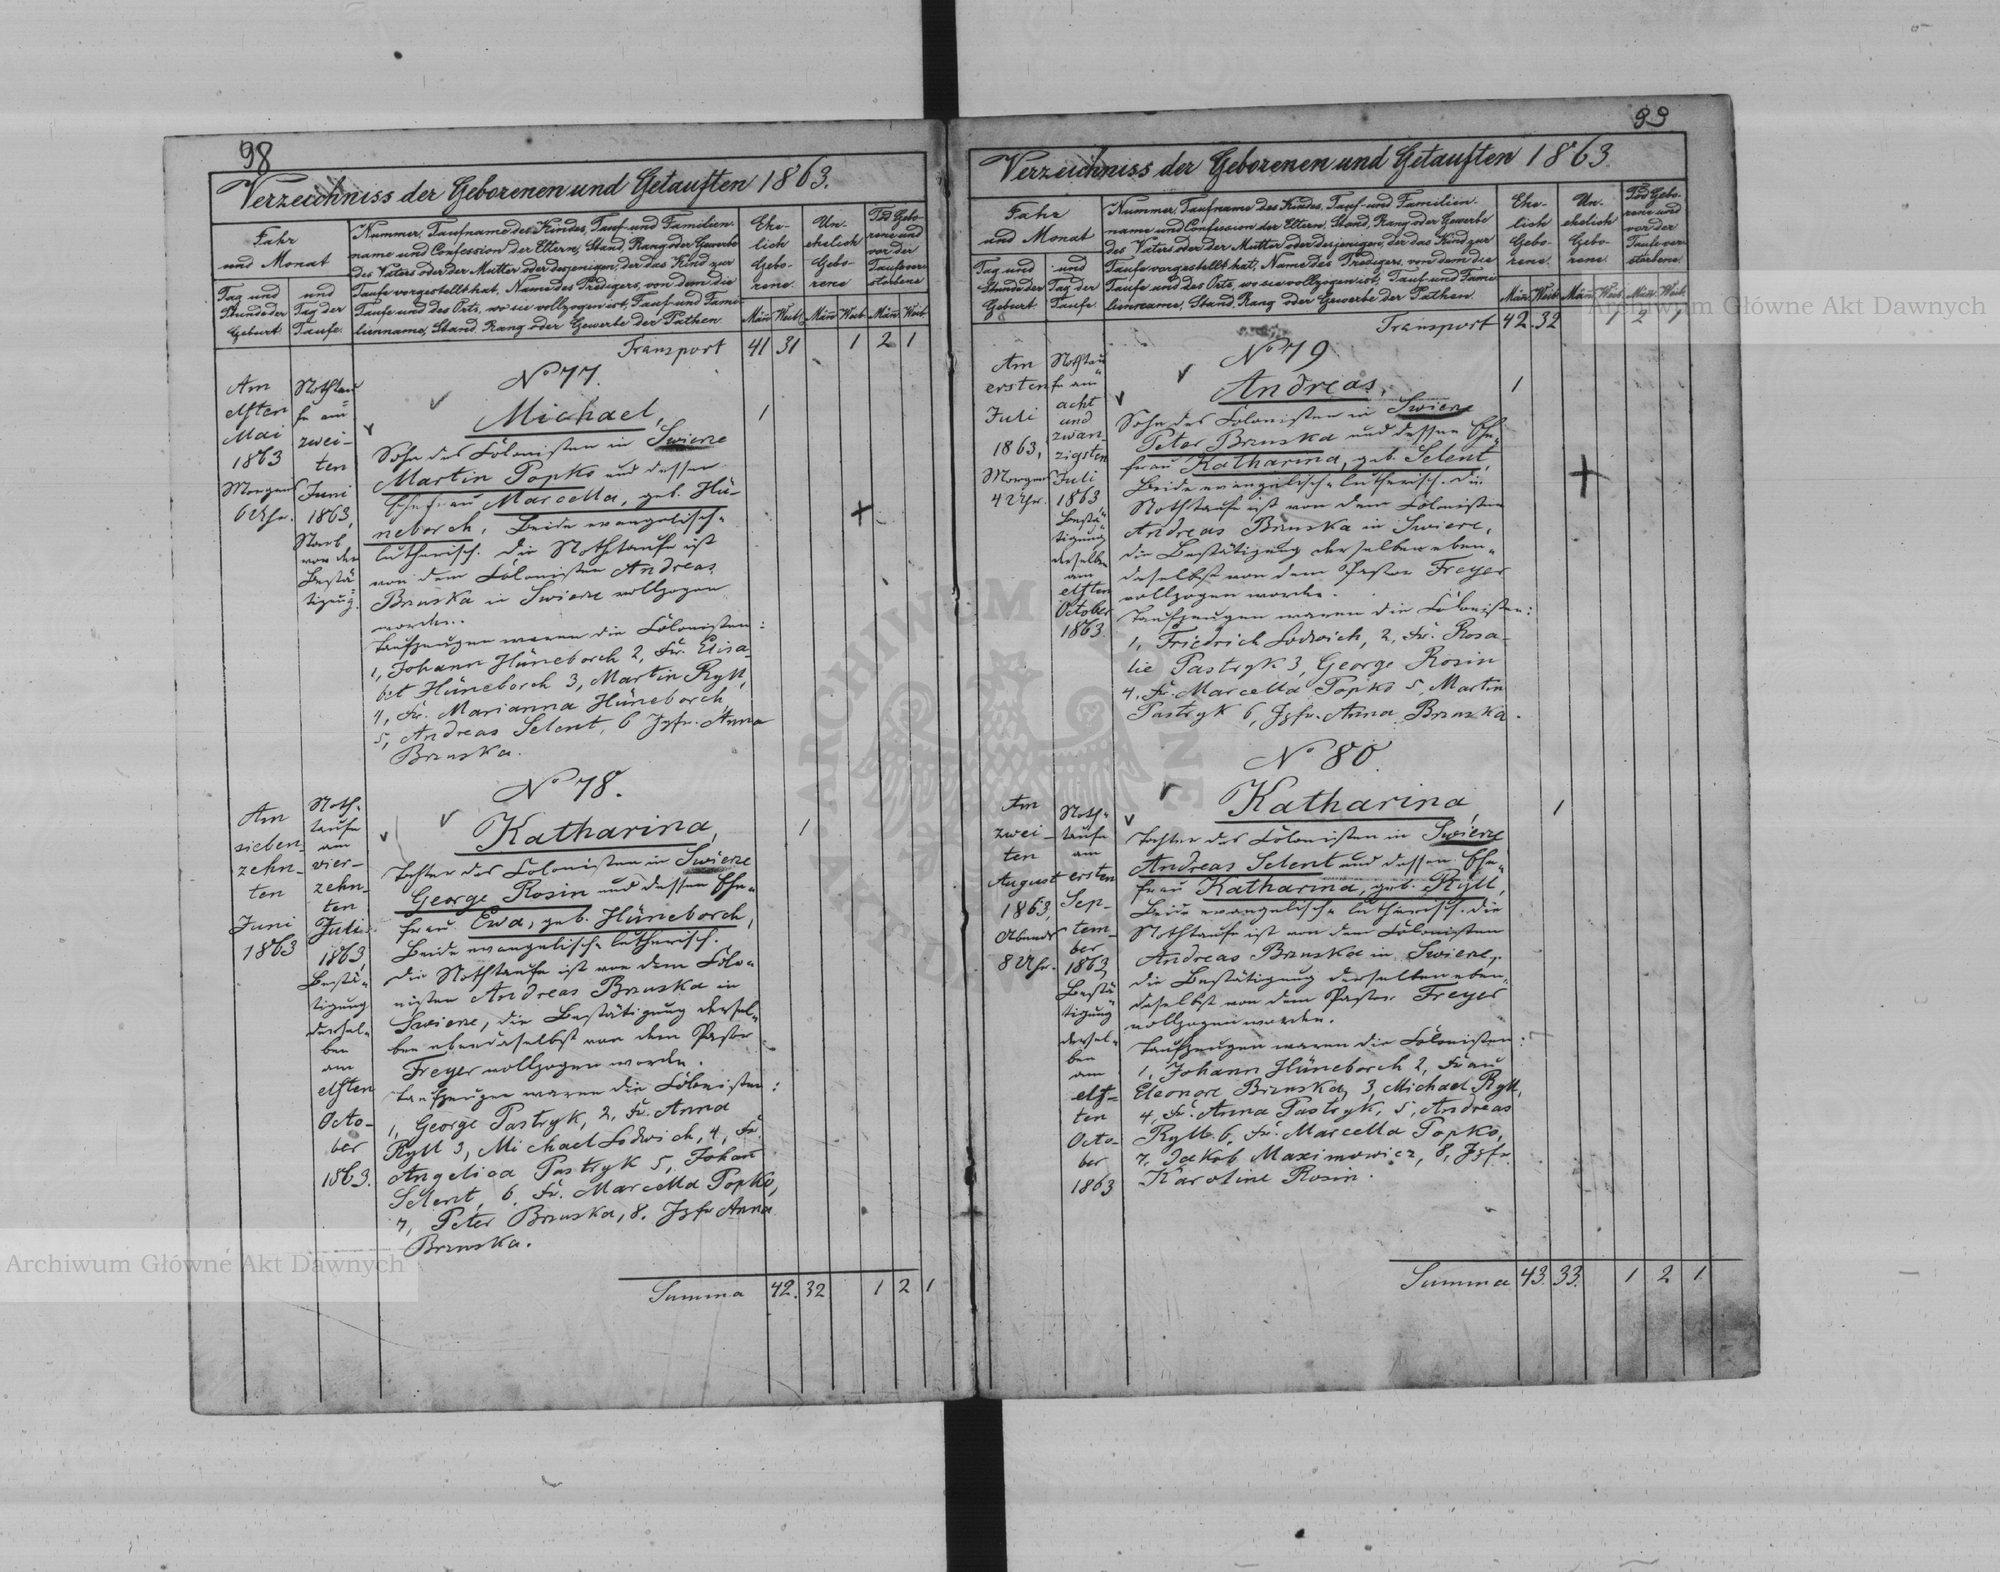 98
Verzeichniss der Geborenen und Getauften 1863.
Jahr
und Monat
Tag und
Stunde der
Geburt
und
Tag der
Taufe.
Nummer, Taufname des Kindes, Tauf- und Familien-
name und Confession der Eltern, Stand, Rang oder Gewerbe
des Vaters oder der Mutter oder desjenigen, der das Kind zur
Taufe vorgestellt hat, Name des Predigers, von dem die
Taufe und des Orts, wo sie vollzogen ist, Tauf- und Fami-
lienname, Stand, Rang oder Gewerbe der Pathen
Ehe-
lich
Gebo-
rene.
Un-
ehelich
Gebo-
rene
Tod Gebo-
rene und
vor der
Taufe ver-
storbene
Män̄ Weib. Män̄ Weib. Män̄ Weib.
Transport 41 31 1 2 1
Am
elften
Mai
1863
Morgens
6 Uhr.
Nothtau=
fe am
zwei-
ten
Juni
1863,
Starb
vor der
Bestä=
tigung.
No 77.
Michael, 1
Sohn des Colonisten in Swierze
Martin Popko und dessen
Ehefrau Marcella, geb. Hü-
neborch, Beide evangelisch-
lutherisch. Die Nothtaufe ist
von dem Colonisten Andreas
Brzuska in Swierze vollzogen
worden.
Taufzeugen waren die Colonisten:
1, Johann Hüneborch 2, Fr. Elisa-
bet Hüneborch 3, Martin Ryll,
4, Fr. Marianna Hüneborch
5, Andreas Selent, 6 Jgfr. Anna
Brzuska.
Am
sieben-
zehn-
ten
Juni
1863
Noth-
taufe
am
vier-
zehn-
ten
Juli
1863,
Bestä-
tigung
dersel-
ben
am
elften
Octo-
ber
1863.
No 78.
Katharina, 1
Tochter des Colonisten in Swierze
George Rosin und dessen Ehe-
frau Ewa, geb. Hüneborch,
Beide evangelisch-lutherisch.
Die Nothtaufe ist von dem Colo-
nisten Andreas Brzuska in
Swierze, die Bestätigung dersel-
ben ebendaselbst von dem Pastor
Freyer vollzogen worden.
Taufzeugen waren die Colonisten:
1, George Pastryk, 2, Fr. Anna
Ryll 3, Michael Lodwich, 4, Fr.
Angelica Pastryk 5, Johan̄
Selent, 6, Fr. Marcella Popko,
7, Peter Brzuska, 8, Jgfr Anna
Brzuska.
Summa 42. 32 1 2 1
99
Verzeichniss der Geborenen und Getauften 1863.
Jahr
und Monat
Tag und
Stunde der
Geburt
und
Tag der
Taufe
Nummer, Taufname des Kindes, Tauf- und Familien-
name und Confession der Eltern, Stand, Rang oder Gewerbe
des Vaters oder der Mutter oder desjenigen, der das Kind zur
Taufe vorgestellt hat, Name des Predigers, von dem die
Taufe und des Orts, wo sie vollzogen ist, Tauf- und Fami-
lienname, Stand, Rang oder Gewerbe der Pathen
Ehe-
lich
Gebo-
rene.
Un-
ehelich
Gebo-
rene.
Tod Gebo-
rene und
vor der
Taufe ver-
storbene
Män̄ Weib. Män̄ Weib. Män̄ Weib.
Transport 42. 32 1 2 1
Am
ersten
Juli
1863,
Morgens
4 Uhr.
Nothtau=
fe am
acht
und
zwan-
zigsten
Juli
1863
Bestä-
tigung
derselben
am
elften
October
1863.
No 79.
Andreas, 1
Sohn des Colonisten in Swierze
Peter Brzuska und dessen Ehe-
frau Katharina, geb. Selent,
Beide evangelisch-lutherisch. Die
Nothtaufe ist von dem Colonisten
Andreas Brzuska in Swierze,
die Bestätigung derselben eben-
daselbst von dem Pastor Freyer
vollzogen worden.
Taufzeugen waren die Colonisten:
1, Friedrich Lodwich, 2, Fr. Rosa-
lie Pastryk 3, George Rosin
4, Fr. Marcella Popko 5, Martin
Pastryk 6, Jgfr. Anna Brzuska.
Am
zwei-
ten
August
1863,
Abends
8 Uhr.
Noth-
taufe
am
ersten
Sep-
tem-
ber
1863,
Bestä-
tigung
dersel-
ben
am
elf-
ten
Octo-
ber
1863
No 80.
Katharina, 1
Tochter des Colonisten in Swierze
Andreas Selent und dessen Ehe-
frau Katharina, geb. Ryll,
Beide evangelisch-lutherisch. Die
Nothtaufe ist von dem Colonisten
Andreas Brzuska in Swierze,
die Bestätigung derselben eben-
daselbst von dem Pastor Freyer
vollzogen worden.
Taufzeugen waren die Colonisten:
1, Johann Hüneborch 2, Frau
Eleonore Brzuska, 3, Michael Ryll,
4, Fr. Anna Pastryk, 5, Andreas
Ryll. 6, Fr. Marcella Popko,
7, Jakob Maximowicz, 8, Jgfr.
Karoline Rosin.
Summa 43. 33. 1 2 1
Archiwum Główne Akt Dawnych
Archiwum Główne Akt Dawnych